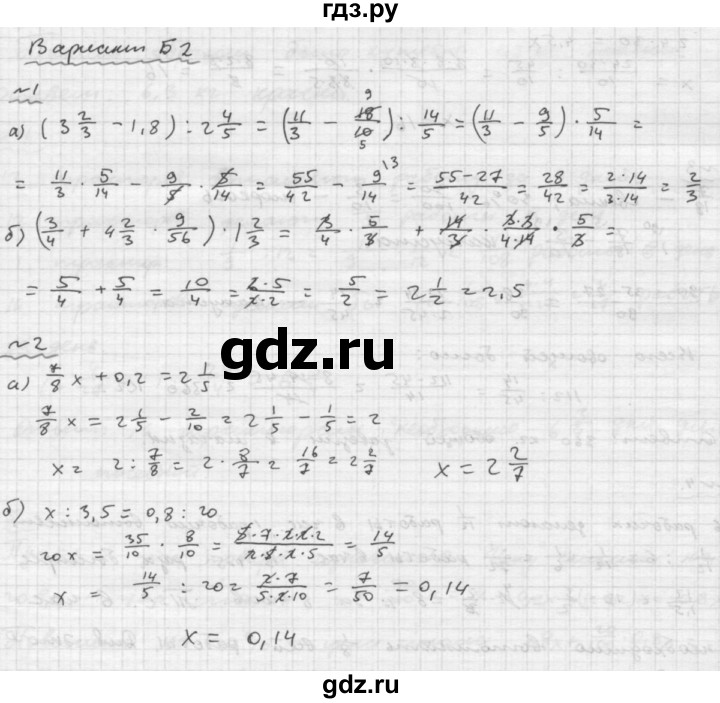 гдз.ру
Вариант Б2
№1
а) (3 2/3 − 1,8) : 2 4/5 = (11/3 − 18/10) : 14/5 = (11/3 − 9/5) · 5/14 =
= 11/3 · 5/14 − 9/5 · 5/14 = 55/42 − 9/14 = (55−27)/42 = 28/42 = (2·14)/(3·14) = 2/3
б) (3/4 + 4 2/3 · 9/56) · 1 2/3 = 3/4 · 5/3 + 14/3 · (3·3)/(4·14) · 5/3 =
= 5/4 + 5/4 = 10/4 = (2·5)/(2·2) = 5/2 = 2 1/2 = 2,5
gdz.ru
№2
а) 7/8 x + 0,2 = 2 1/5
7/8 x = 2 1/5 − 2/10 = 2 1/5 − 1/5 = 2
x = 2 : 7/8 = 2 · 8/7 = 16/7 = 2 2/7 x = 2 2/7
б) x : 3,5 = 0,8 : 20
20x = 35/10 · 8/10 = (5·7·2·2·2)/(2·5·2·5) = 14/5
x = 14/5 : 20 = (2·7)/(5·2·10) = 7/50 = 0,14
x = 0,14
gdz.ru